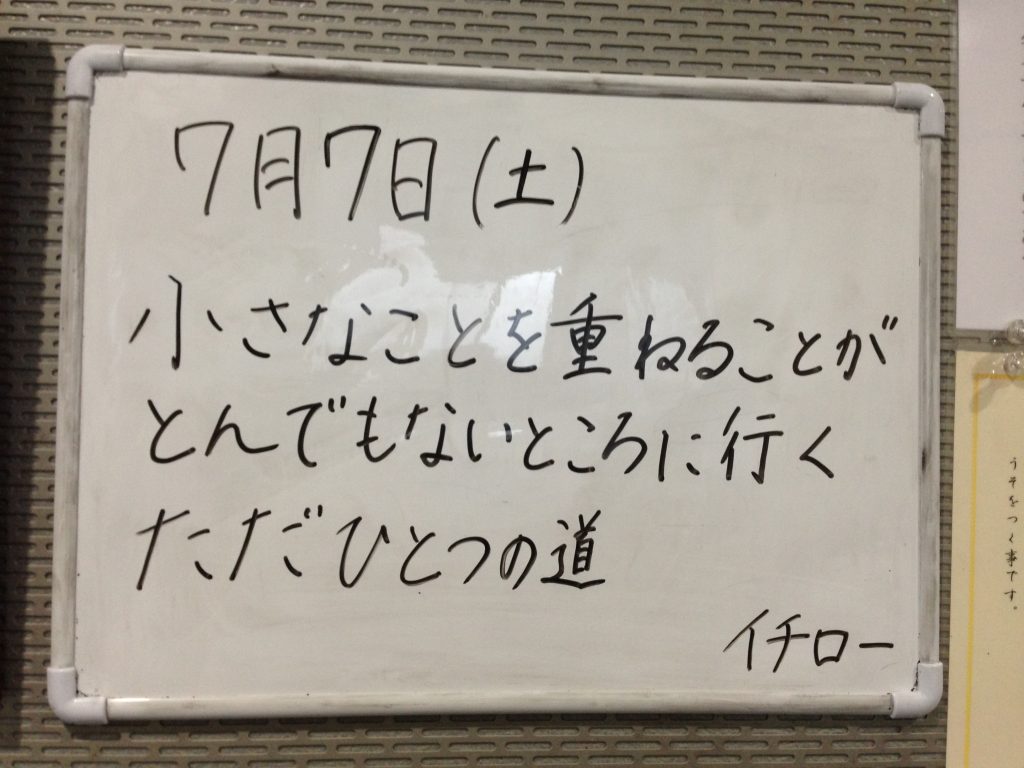 7月7日(土)
小さなことを重ねることが
とんでもないところに行く
ただひとつの道
イチロー
うそをつく事です。